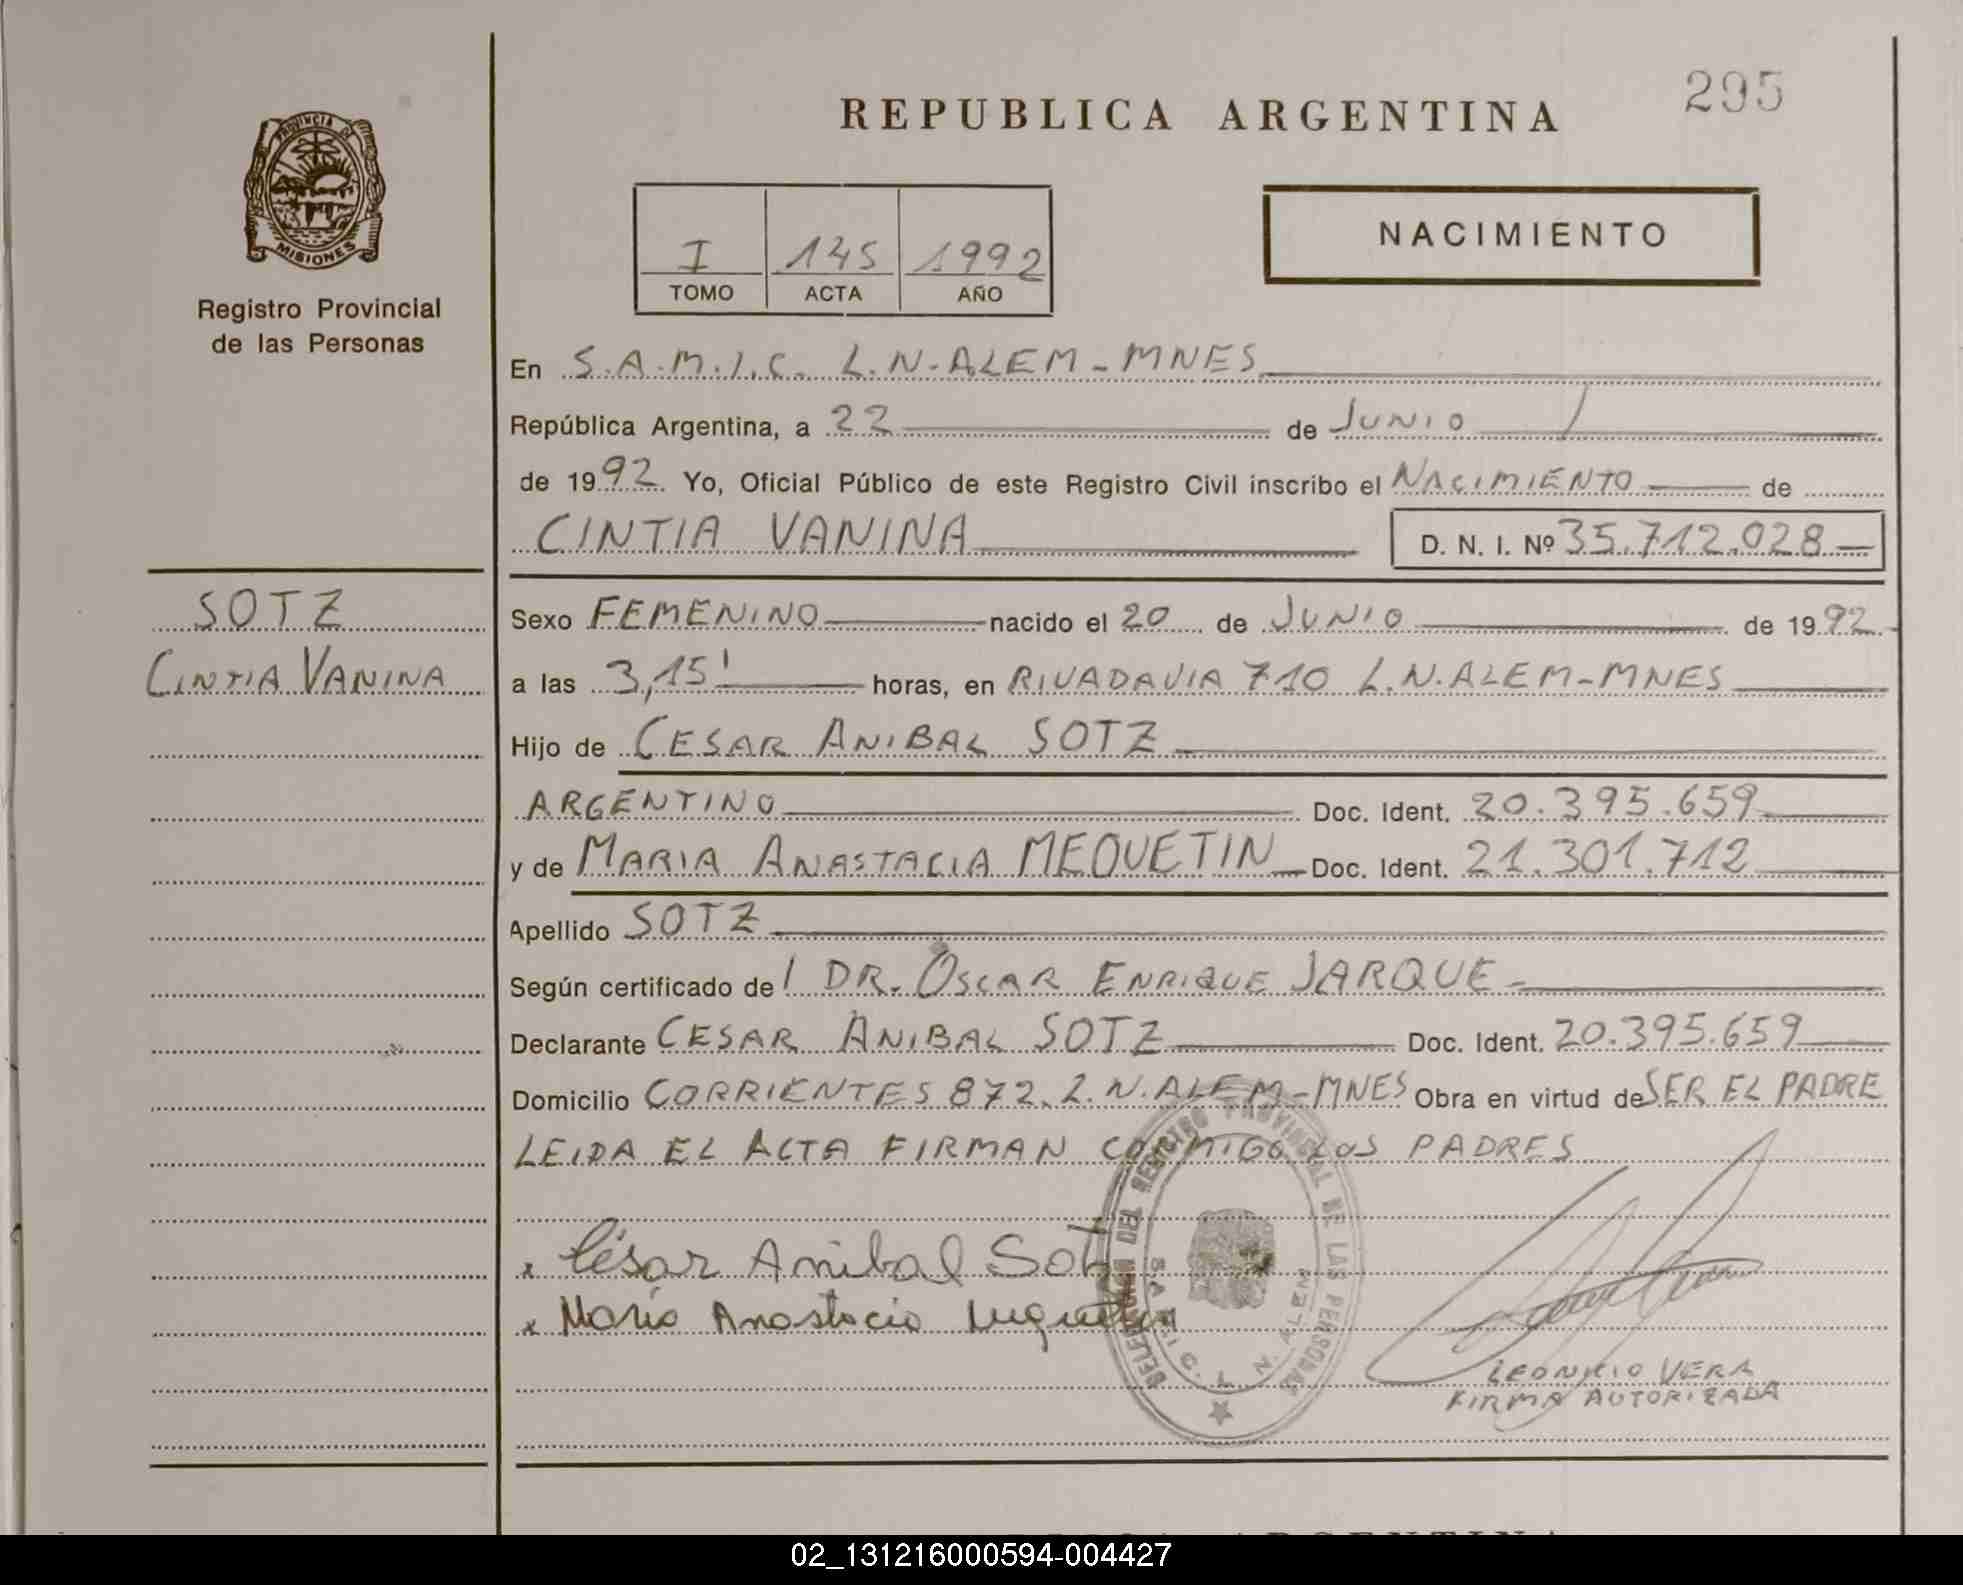 REPUBLICA ARGENTINA
295
PROVINCIA DE
MISIONES
Registro Provincial
de las Personas
I 145 1992
TOMO ACTA AÑO
NACIMIENTO
En S.A.M.I.C. L.N.ALEM-MNES
República Argentina, a 22 de JUNIO
de 1992. Yo, Oficial Público de este Registro Civil inscribo el NACIMIENTO de
CINTIA VANINA D. N. I. Nº 35.712.028
SOTZ
CINTIA VANINA
Sexo FEMENINO nacido el 20 de JUNIO de 1992
a las 3,15' horas, en RIVADAVIA 710 L.N.ALEM-MNES
Hijo de CESAR ANIBAL SOTZ
ARGENTINO Doc. Ident. 20.395.659
y de MARIA ANASTACIA MEQUETIN Doc. Ident. 21.301.712
Apellido SOTZ
Según certificado de l DR. OSCAR ENRIQUE JARQUE
Declarante CESAR ANIBAL SOTZ Doc. Ident. 20.395.659
Domicilio CORRIENTES 872. L.N.ALEM-MNES Obra en virtud de SER EL PADRE
LEIDA EL ACTA FIRMAN CONMIGO LOS PADRES
x César Anibal Sotz
x Maria Anastacia
DELEGACION DEL REGISTRO PROVINCIAL DE LAS PERSONAS
S.A.M.I.C. L. N. ALEM
LEONICIO VERA
FIRMA AUTORIZADA
02_131216000594-004427